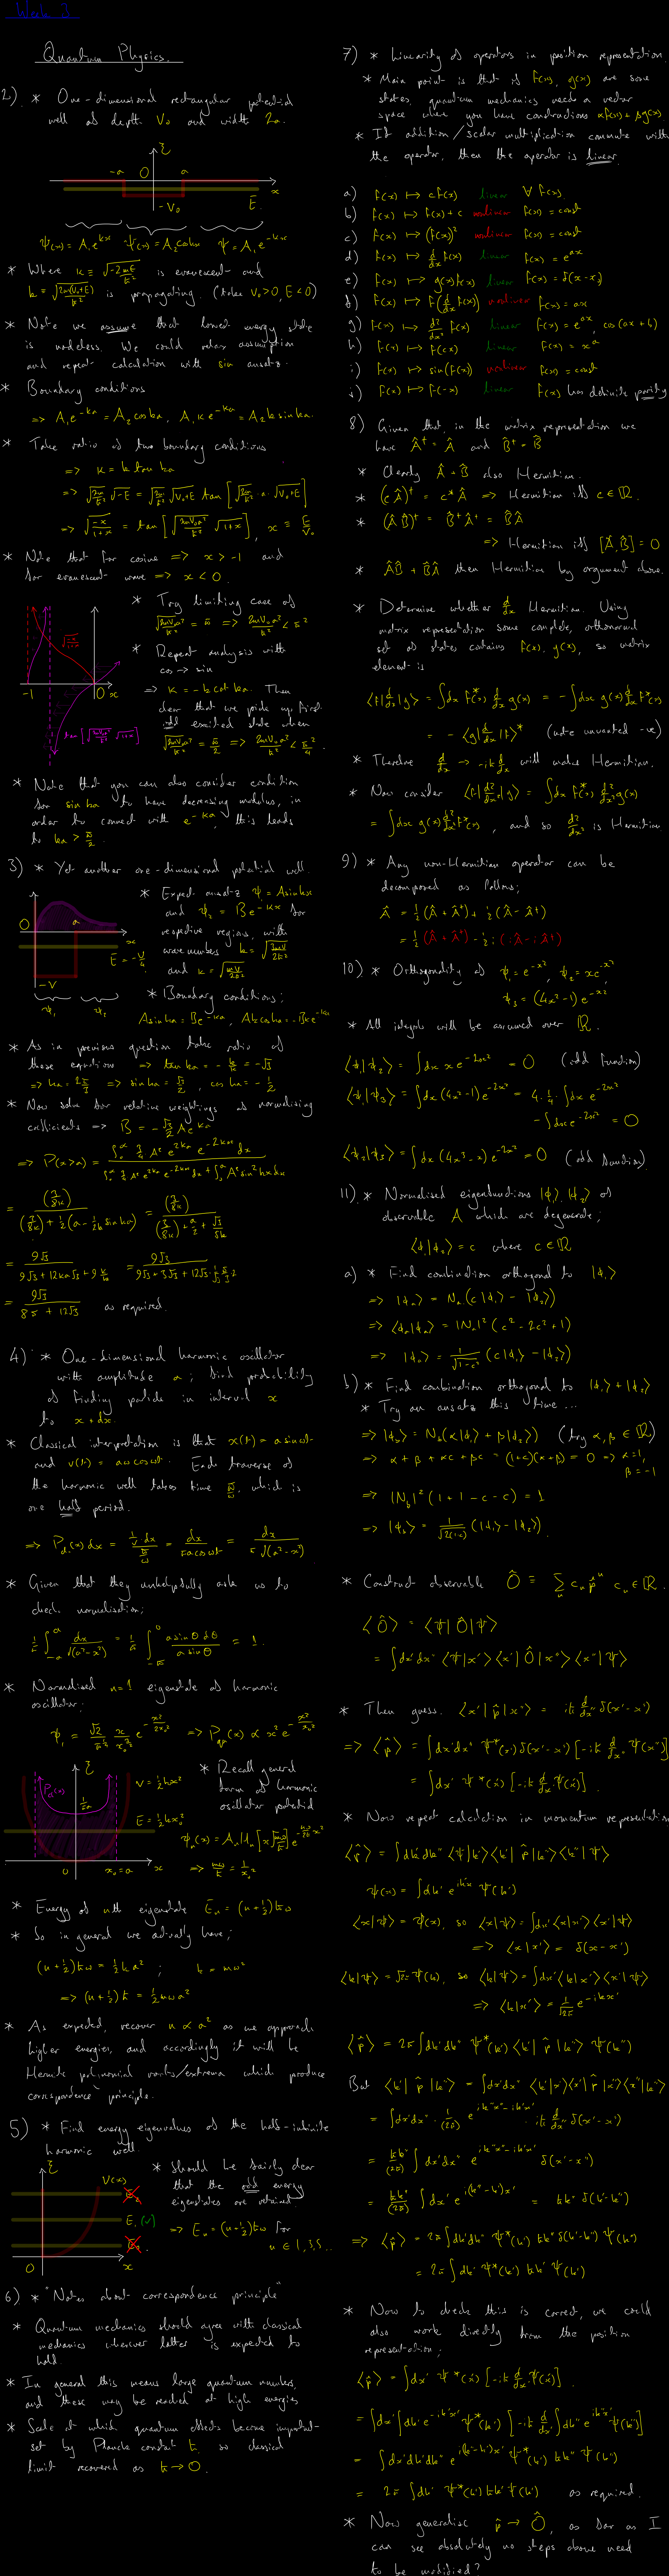 Week 3
Quantum Physics.
2). * One-dimensional rectangular potential
well of depth V₀ and width 2a.
ξ
-a O a x
-V₀ E
ψ(x) = A₁e^{κx} ψ(x) = A₂cos kx ψ = A₁e^{-κx}
* Where κ ≡ √(-2mE/ħ²) is evanescent and
k = √(2m(V₀+E)/ħ²) is propagating. (take V₀>0, E<0)
* Note we assume that lowest energy state
is nodeless. We could relax assumption
and repeat calculation with sin ansatz.
* Boundary conditions
⇒ A₁e^{-κa} = A₂cos ka, A₁κe^{-κa} = A₂k sin ka.
* Take ratio of two boundary conditions
⇒ κ = k tan ka
⇒ √(2m/ħ²) √-E = √(2m/ħ²) √(V₀+E) tan [√(2m/ħ²) · a · √(V₀+E)]
⇒ √(-x/(1+x)) = tan [√(2mV₀a²/ħ²) √(1+x)], x ≡ E/V₀
* Note that for cosine ⇒ x > -1 and
for evanescent wave ⇒ x < 0.
-1 O x
tan [√(2mV₀a²/ħ²) √(1+x)]
* Try limiting case of
√(2mV₀a²/ħ²) = π ⇒ 2mV₀a²/ħ² < π²
* Repeat analysis with
cos → sin
⇒ κ = -k cot ka. Then
clear that we pick up first
odd excited state when
√(2mV₀a²/ħ²) = π/2 ⇒ 2mV₀a²/ħ² < π²/4.
* Note that you can also consider condition
for sin ka to have decreasing modulus, in
order to connect with e^{-κa}, this leads
to ka > π/2.
3) * Yet another one-dimensional potential well.
O a x
E = -V/4
-V
ψ₁ ψ₂
* Expect ansatz ψ₁ = A sin kx
and ψ₂ = Be^{-κx} for
respective regions, with
wavenumbers k = √(3mV/2ħ²)
and κ = √(mV/2ħ²)
* Boundary conditions;
A sin ka = Be^{-κa}, Ak cos ka = -Bκe^{-κa}
* As in previous question take ratio of
these equations ⇒ tan ka = -k/κ = -√3
⇒ ka = 2π/3 ⇒ sin ka = √3/2, cos ka = -1/2
* Now solve for relative weightings of normalising
coefficients ⇒ B = √3/2 Ae^{κa}
⇒ P(x>a) = ∫ₐ^∞ ¾ A² e^{2κa} e^{-2κx} dx / (∫ₐ^∞ ¾ A² e^{2κa} e^{-2κx} dx + ∫₀^a A² sin² kx dx)
= (3/8κ) / ((3/8κ) + ½(a - 1/2k sin 2ka)) = (3/8κ) / ((3/8κ) + a/2 + √3/8k)
= 9√3 / (8π + 12√3) as required.
4) * One-dimensional harmonic oscillator
with amplitude a; find probability
of finding particle in interval x
to x + dx.
* Classical interpretation is that x(t) = a sin ωt
and v(t) = aω cos ωt. Each traverse of
the harmonic well takes time π/ω, which is
one half period.
⇒ P_cl(x)dx = (1/v · dx)/(π/ω) = dx/(πa cos ωt) = dx/(π√(a²-x²))
* Given that they unhelpfully ask us to
check normalisation;
1/π ∫_{-a}^{a} dx/√(a²-x²) = 1/π ∫_{-π}^{0} a sin θ dθ / a sin θ = 1.
* Normalised n=1 eigenstate of harmonic
oscillator.
⇒ P_qm(x) ∝ x² e^{-x²/x₀²}
P_cl(x)
ξ
V = ½kx²
E = ½kx₀²
1/πa
O x₀=a x
* Recall general
form of harmonic
oscillator potential
ψₙ(x) = AₙHₙ[x√(mω/ħ)] e^{-mω/2ħ x²}
⇒ mω/ħ = 1/x₀²
* Energy of nth eigenstate Eₙ = (n+½)ħω
* So in general we actually have;
(n+½)ħω = ½ka² ; k = mω²
⇒ (n+½)ħ = ½mωa²
* As expected, recover n ∝ a² as we approach
higher energies, and accordingly it will be
Hermite polynomial roots/extrema which produce
correspondence principle.
5) * Find energy eigenvalues of the half-infinite
harmonic well
ξ V(x)
E₂
E₁ (✓)
E₀
O x
* Should be fairly clear
that the odd energy
eigenstates are retained
⇒ Eₙ = (n+½)ħω for
n ∈ 1,3,5...
6) * "Notes about correspondence principle"
* Quantum mechanics should agree with classical
mechanics wherever latter is expected to
hold.
* In general this means large quantum numbers,
and these may be reached at high energies
* Scale at which quantum effects become important
set by Planck constant ħ, so classical
limit recovered as ħ → 0.
7) * Linearity of operators in position representation.
* Main point is that if f(x), g(x) are some
states, quantum mechanics needs a vector
space where you have constructions αf(x) + βg(x)
* If addition/scalar multiplication commute with
the operator, then the operator is linear.
a) f(x) ↦ cf(x) linear ∀ f(x).
b) f(x) ↦ f(x) + c nonlinear f(x) = const
c) f(x) ↦ (f(x))² nonlinear f(x) = const
d) f(x) ↦ d/dx f(x) linear f(x) = e^{ax}
e) f(x) ↦ g(x)f(x) linear f(x) = δ(x-x₀)
f) f(x) ↦ f(d/dx f(x)) nonlinear f(x) = ax
g) f(x) ↦ d²/dx² f(x) linear f(x) = e^{ax}, cos(ax+b)
h) f(x) ↦ f(cx) linear f(x) = x^a
i) f(x) ↦ sin(f(x)) nonlinear f(x) = const
j) f(x) ↦ f(-x) linear f(x) has definite parity
8) Given that, in the matrix representation we
have Â† = Â and B̂† = B̂
* Clearly Â + B̂ also Hermitian.
* (cÂ)† = c*Â ⇒ Hermitian iff c ∈ ℝ.
* (ÂB̂)† = B̂†Â† = B̂Â
⇒ Hermitian iff [Â,B̂] = 0
* ÂB̂ + B̂Â then Hermitian by argument above.
* Determine whether d/dx Hermitian. Using
matrix representation some complete, orthonormal
set of states contains f(x), g(x), so matrix
element is
⟨f|d/dx|g⟩ = ∫dx f*(x) d/dx g(x) = -∫dx g(x) d/dx f*(x)
= -⟨g|d/dx|f⟩* (note unwanted -ve)
* Therefore d/dx → -iħ d/dx will make Hermitian.
* Now consider ⟨f|d²/dx²|g⟩ = ∫dx f*(x) d²/dx² g(x)
= ∫dx g(x) d²/dx² f*(x), and so d²/dx² is Hermitian
9) * Any non-Hermitian operator can be
decomposed as follows;
Â = ½(Â + Â†) + ½(Â - Â†)
= ½(Â + Â†) - ½i(iÂ - iÂ†)
10) * Orthogonality of ψ₁ = e^{-x²}, ψ₂ = xe^{-x²},
ψ₃ = (4x²-1)e^{-x²}
* All integrals will be assumed over ℝ.
⟨ψ₁|ψ₂⟩ = ∫dx x e^{-2x²} = 0 (odd function)
⟨ψ₁|ψ₃⟩ = ∫dx (4x²-1)e^{-2x²} = 4·¼·∫dx e^{-2x²}
-∫dx e^{-2x²} = 0
⟨ψ₂|ψ₃⟩ = ∫dx (4x³-x)e^{-2x²} = 0 (odd function).
11) * Normalised eigenfunctions |φ₁⟩, |φ₂⟩ of
observable A which are degenerate;
⟨φ₁|φ₂⟩ = c where c ∈ ℝ
a) * Find combination orthogonal to |φ₁⟩
⇒ |φₐ⟩ = Nₐ(c|φ₁⟩ - |φ₂⟩)
⇒ ⟨φₐ|φₐ⟩ = |Nₐ|²(c² - 2c² + 1)
⇒ |φₐ⟩ = 1/√(1-c²) (c|φ₁⟩ - |φ₂⟩)
b) * Find combination orthogonal to |φ₁⟩ + |φ₂⟩
* Try an ansatz this time...
⇒ |φ_b⟩ = N_b(α|φ₁⟩ + β|φ₂⟩) (try α, β ∈ ℝ)
⇒ α + β + αc + βc = (1+c)(α+β) = 0 ⇒ α=1,
β=-1
⇒ |N_b|²(1 + 1 - c - c) = 1
⇒ |φ_b⟩ = 1/√(2(1-c)) (|φ₁⟩ - |φ₂⟩).
* Construct observable Ô ≡ Σₙ cₙp̂ⁿ cₙ ∈ ℝ.
⟨Ô⟩ = ⟨ψ|Ô|ψ⟩
= ∫dx'dx'' ⟨ψ|x'⟩⟨x'|Ô|x''⟩⟨x''|ψ⟩
* Then guess. ⟨x'|p̂|x''⟩ = iħ d/dx'' δ(x'-x'')
⇒ ⟨p̂⟩ = ∫dx'dx'' ψ*(x') δ(x'-x'') [-iħ d/dx'' ψ(x'')]
= ∫dx' ψ*(x') [-iħ d/dx' ψ(x')].
* Now repeat calculation in momentum representation
⟨p̂⟩ = ∫dk'dk'' ⟨ψ|k'⟩⟨k'|p̂|k''⟩⟨k''|ψ⟩
ψ(x) = ∫dk' e^{ik'x} ψ(k')
⟨x|ψ⟩ = ψ(x), so ⟨x|ψ⟩ = ∫dx' ⟨x|x'⟩⟨x'|ψ⟩
⇒ ⟨x|x'⟩ = δ(x-x')
⟨k|ψ⟩ = √2π ψ(k), so ⟨k|ψ⟩ = ∫dx' ⟨k|x'⟩⟨x'|ψ⟩
⇒ ⟨k|x'⟩ = 1/√2π e^{-ikx'}
⟨p̂⟩ = 2π∫dk'dk'' ψ*(k') ⟨k'|p̂|k''⟩ ψ(k'')
But ⟨k'|p̂|k''⟩ = ∫dx'dx'' ⟨k'|x'⟩⟨x'|p̂|x''⟩⟨x''|k''⟩
= ∫dx'dx'' 1/(2π) e^{ik''x''-ik'x'} · iħ d/dx'' δ(x'-x'')
= ħk''/(2π) ∫dx'dx'' e^{ik''x''-ik'x'} δ(x'-x'')
= ħk''/(2π) ∫dx' e^{i(k''-k')x'} = ħk'' δ(k'-k'')
⇒ ⟨p̂⟩ = 2π∫dk'dk'' ψ*(k') ħk'' δ(k'-k'') ψ(k'')
= 2π∫dk' ψ*(k') ħk' ψ(k')
* Now to check this is correct, we could
also work directly from the position
representation;
⟨p̂⟩ = ∫dx' ψ*(x') [-iħ d/dx' ψ(x')].
= ∫dx' ∫dk' e^{-ik'x'} ψ*(k') [-iħ d/dx' ∫dk'' e^{ik''x'} ψ(k'')]
= ∫dx'dk'dk'' e^{i(k''-k')x'} ψ*(k') ħk'' ψ(k'')
= 2π∫dk' ψ*(k') ħk' ψ(k') as required.
* Now generalise p̂ → Ô, as far as I
can see absolutely no steps above need
to be modified?